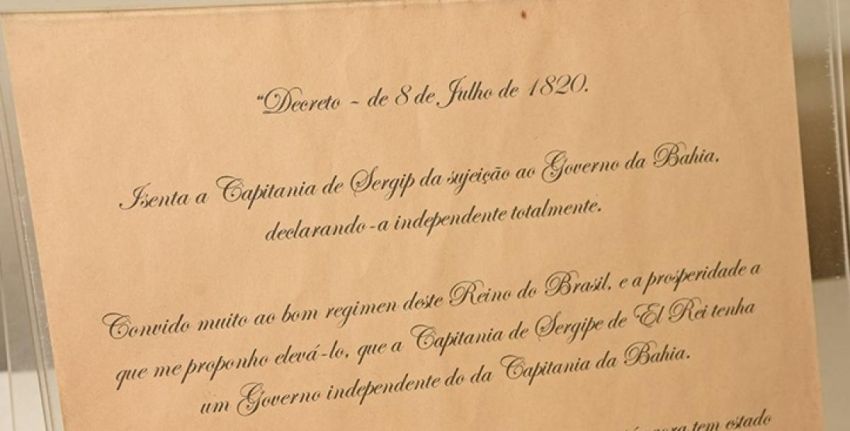 “Decreto - de 8 de Julho de 1820.
Isenta a Capitania de Sergip da sujeição ao Governo da Bahia,
declarando-a independente totalmente.
Convido muito ao bom regimen deste Reino do Brasil, e a prosperidade a
que me proponho elevá-lo, que a Capitania de Sergipe de El Rei tenha
um Governo independente do da Capitania da Bahia.
tem estado